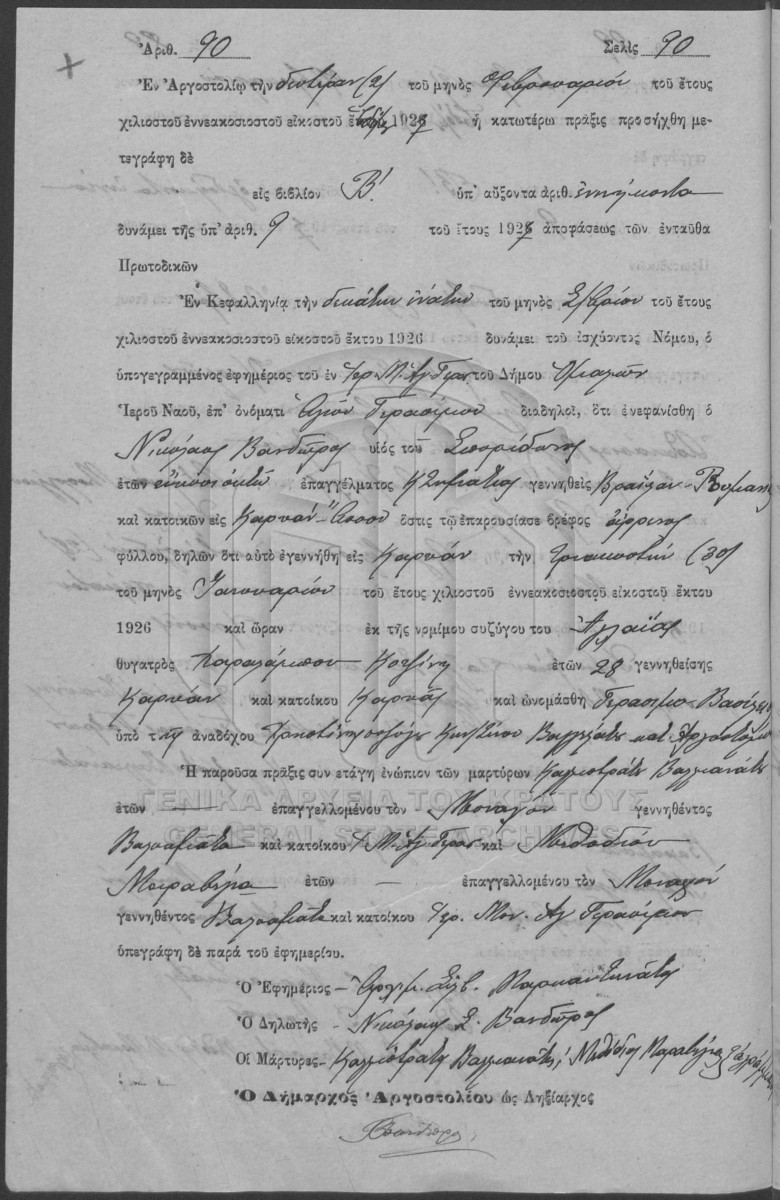 Ἀριθ. 90 Σελὶς 90
Ἐν Ἀργοστολίῳ τὴν δευτέραν (2) τοῦ μηνὸς Φεβρουαρίου τοῦ ἔτους
χιλιοστοῦ ἐννεακοσιοστοῦ εἰκοστοῦ 1927 ἡ κατωτέρω πρᾶξις προσήχθη με-
τεγράφη δὲ
εἰς βιβλίον Β! ὑπ' αὔξοντα ἀριθ. ἐννενήκοντα
δυνάμει τῆς ὑπ' ἀριθ. 9 τοῦ ἔτους 1927 ἀποφάσεως τῶν ἐνταῦθα
Πρωτοδικῶν
Ἐν Κεφαλληνίᾳ τὴν δεκάτην ἐνάτην τοῦ μηνὸς τοῦ ἔτους
χιλιοστοῦ ἐννεακοσιοστοῦ εἰκοστοῦ ἕκτου 1926 δυνάμει τοῦ ἰσχύοντος Νόμου, ὁ
ὑπογεγραμμένος ἐφημέριος τοῦ ἐν Ἱερ. Μ. Ἁγ. Γερασ. τοῦ Δήμου Ὁμαλῶν
Ἱεροῦ Ναοῦ, ἐπ' ὀνόματι Ἁγίου Γερασίμου διαδηλοῖ, ὅτι ἐνεφανίσθη ὁ
Νικόλαος Βανδῶρος υἱὸς τοῦ Σπυρίδωνος
ἐτῶν εἴκοσι ὀκτώ ἐπαγγέλματος Κτηματίας γεννηθεὶς Βραΐλαν-Ρουμαν
καὶ κατοικῶν εἰς Καρυάν-Ἄσσου ὅστις τῷ ἐπαρουσίασε βρέφος ἄρρενος
φύλλου, δηλῶν ὅτι αὐτὸ ἐγεννήθη εἰς Καρυάν τὴν τριακοστήν (30)
τοῦ μηνὸς Ἰανουαρίου τοῦ ἔτους χιλιοστοῦ ἐννεακοσιοστοῦ εἰκοστοῦ ἕκτου
1926 καὶ ὥραν ἐκ τῆς νομίμου συζύγου του Ἀγλαΐας
θυγατρὸς Χαραλάμπου Κουζίνη ἐτῶν 28 γεννηθείσης
Καρυάν καὶ κατοίκου Καρυᾶς καὶ ὠνομάσθη Γεράσιμο-Βασίλειος
ὑπὸ τῆς ἀναδόχου συζύγου
Ἡ παροῦσα πρᾶξις συνετάγη ἐνώπιον τῶν μαρτύρων Καλλιστράτου Βαλλιανάτου
ἐτῶν — ἐπαγγελλομένου τὸν Μοναχόν γεννηθέντος
Βαλσαμάτα καὶ κατοίκου Ἱ. Μ. Ἁγ. Γερασ. καὶ Μεθοδίου
ἐτῶν — ἐπαγγελλομένου τὸν Μοναχόν
γεννηθέντος Βαλσαμάτα καὶ κατοίκου Ἱερ. Μον. Ἁγ. Γερασίμου
ὑπεγράφη δὲ παρὰ τοῦ ἐφημερίου.
ΓΕΝΙΚΑ ΑΡΧΕΙΑ ΤΟΥ ΚΡΑΤΟΥΣ
GENERAL STATE ARCHIVES
Ὁ Ἐφημέριος -
Ὁ Δηλωτὴς - Νικόλαος Σ. Βανδῶρος
Οἱ Μάρτυρες - Καλλίστρατος Βαλλιανάτος, Μεθόδιος
Ὁ Δήμαρχος Ἀργοστολίου ὡς Ληξίαρχος